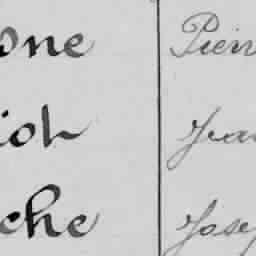 one Pier
ioh Jea
che Jose